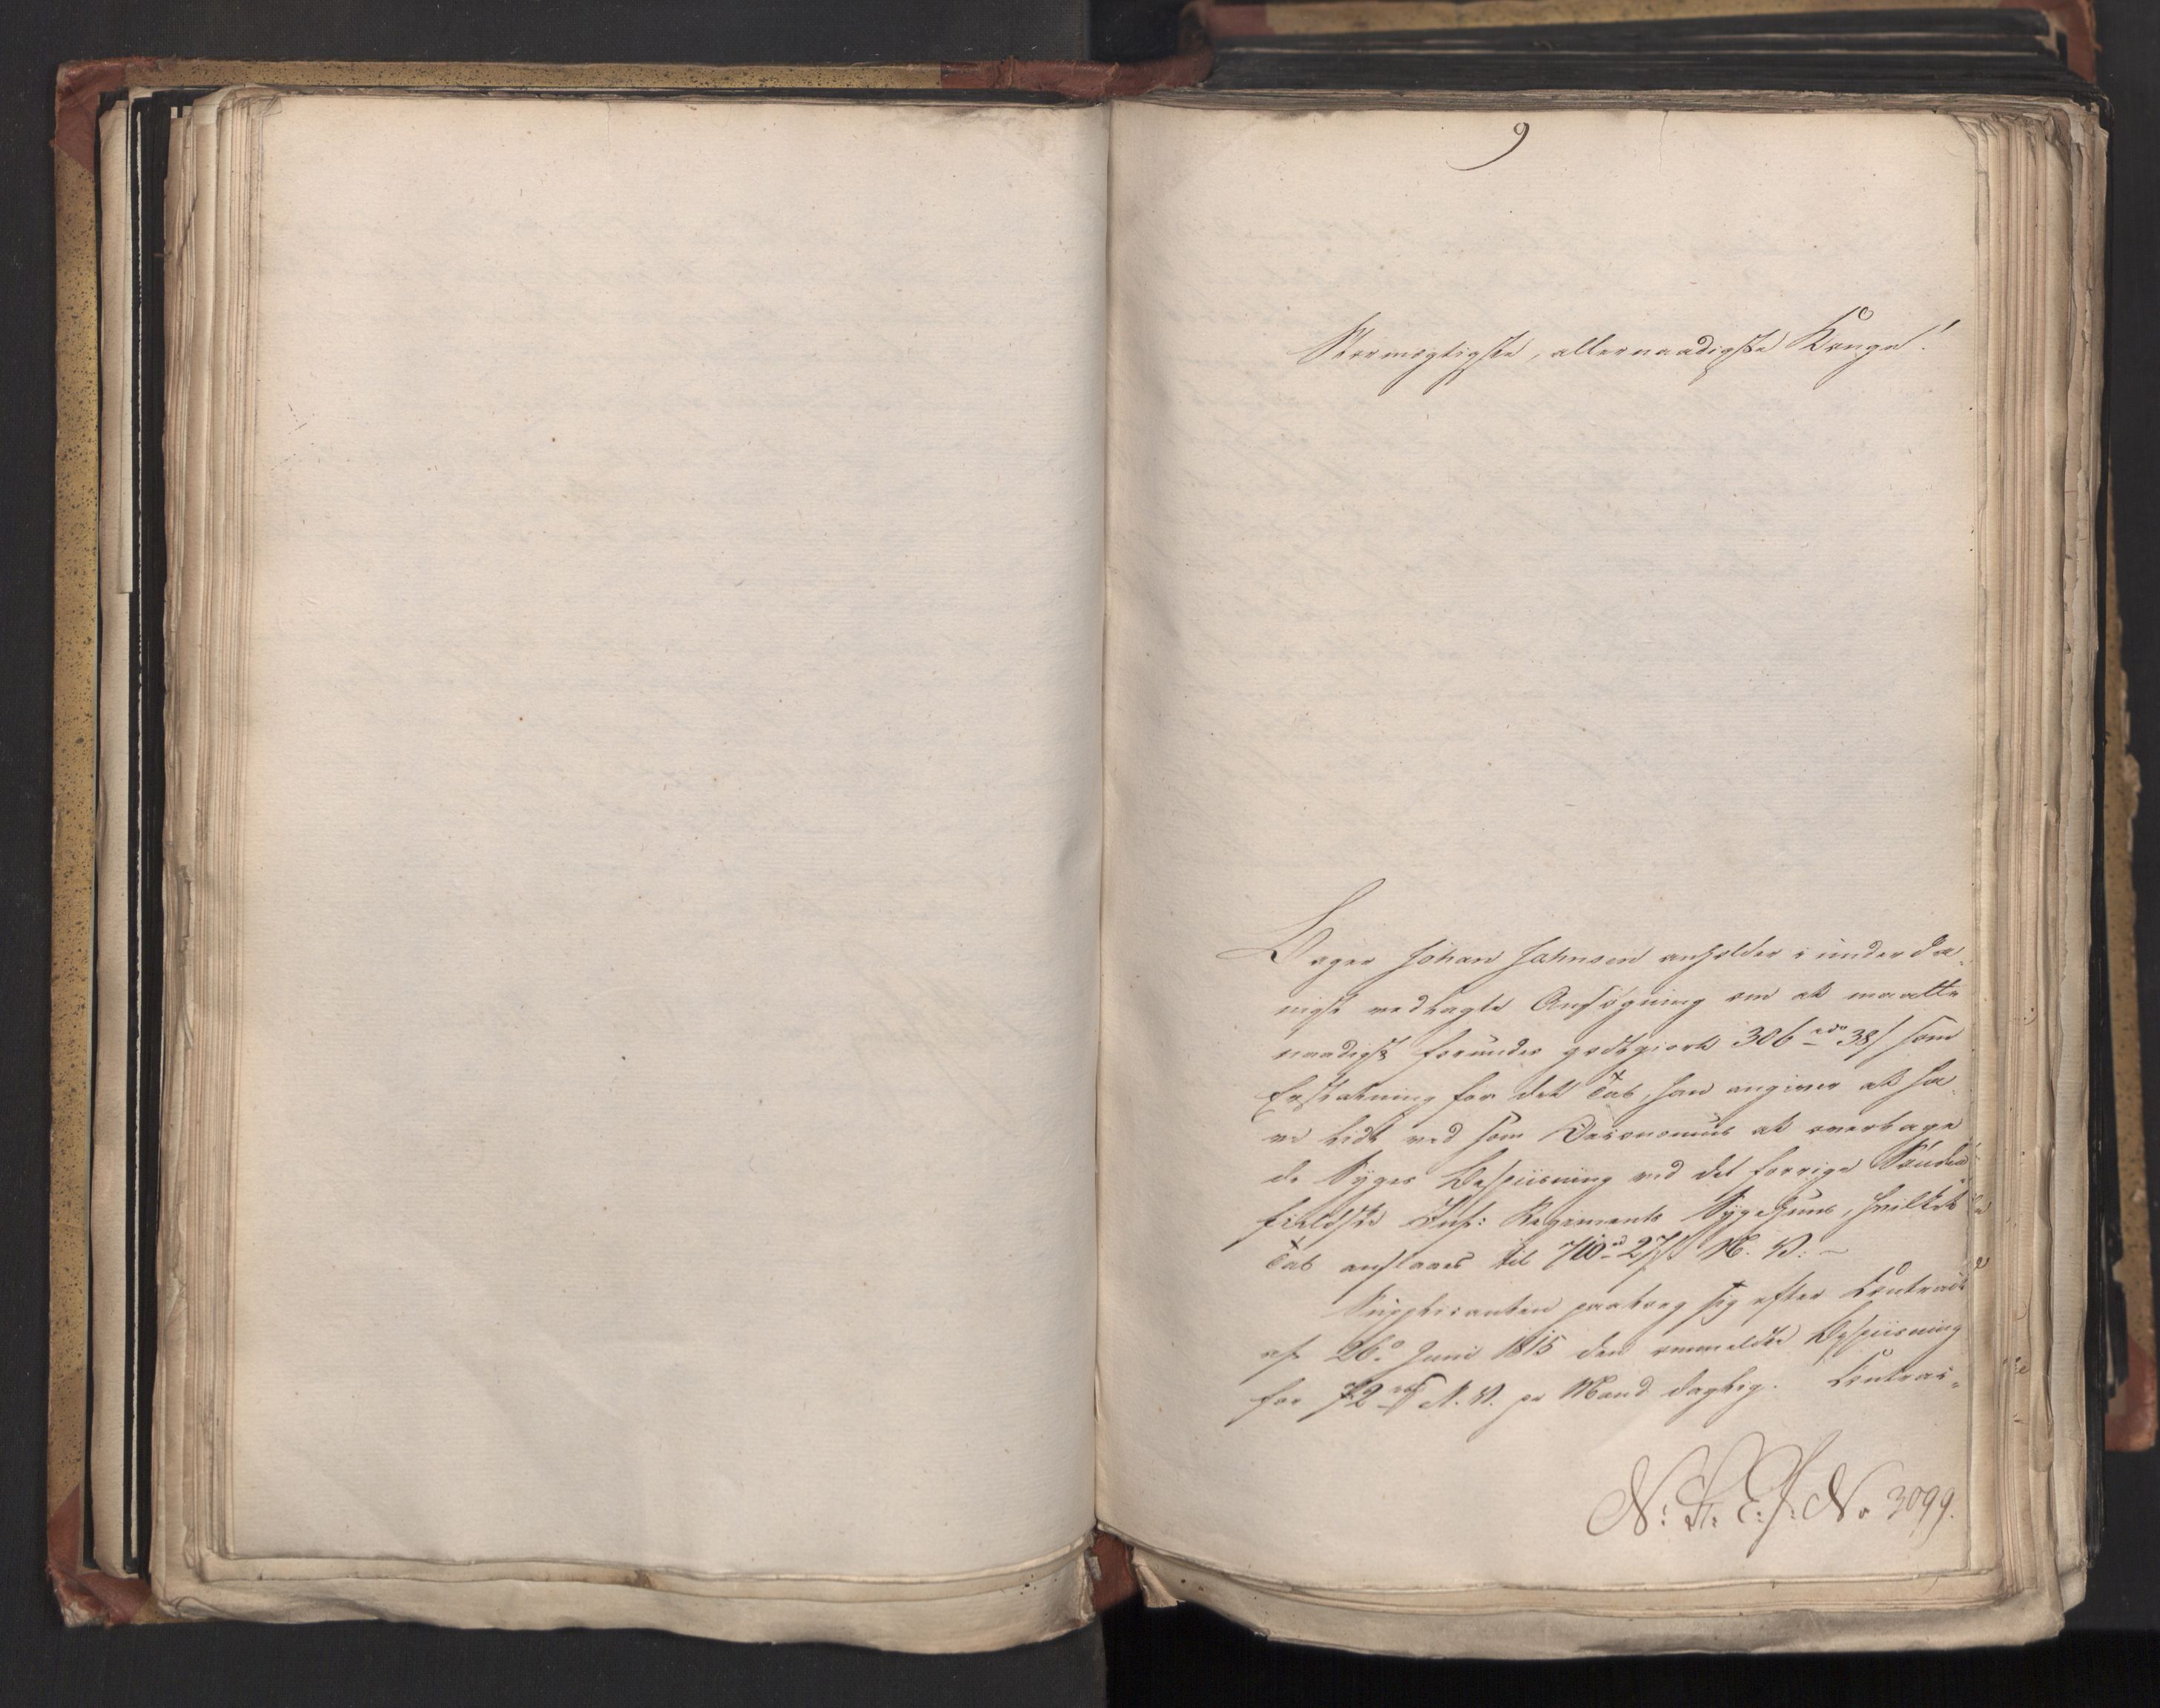 9
Stormægtigste, allernaadigste Konge!
Bager Johan Johnsen anholder i underda„
nigst vedlagte Ansøgning om at maatte
naadigst forundes godtgiort 306 rdr 38 s som
Erstatning for det Tab, han angiver at ha„
ve lidt ved som Oeconomus at overtage
de Syges Bespiisning ved det forrige Sønden„
fieldske Inf: Regiments Sygehuus, hvilket
Tab anslaaes til 710 rd 27 s N. V:
Supplicanten paatog sig efter Contract
af 26.o Juni 1815 den ommeldte Bespiisning
for 72 rbs N. V. pr Mand daglig. Contrac„
N: St: E: J: No 3099.